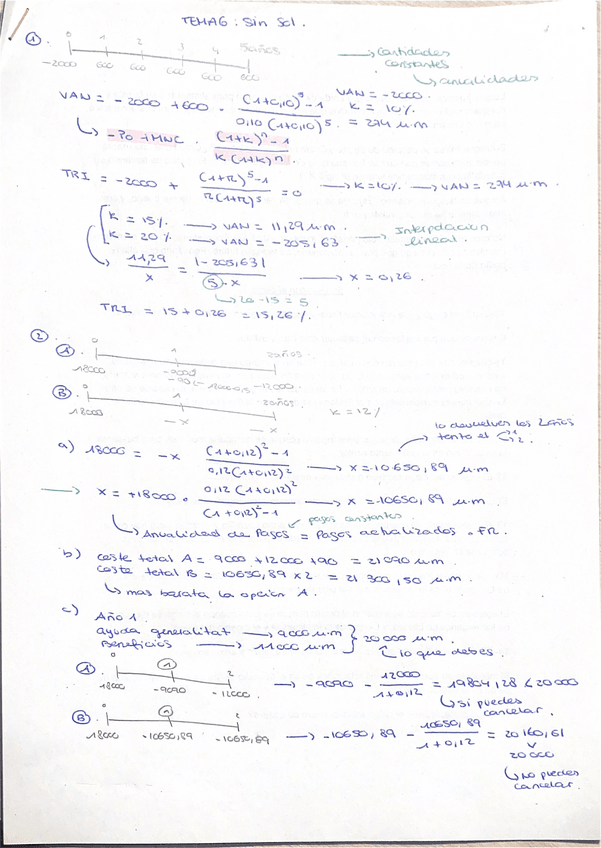 TEMA 6: Sin Sol.
①
0 1 2 3 4 5años
-2000 600 600 600 600 600
→ Cantidades constantes
↳ anualidades
VAN = -2000
K = 10%
VAN = -2000 + 600 · (1+0,10)^5 - 1 / 0,10 (1+0,10)^5 = 274 u.m
↳ -P0 + MNC · (1+K)^n - 1 / K(1+K)^n
TRI = -2000 + (1+R)^5 - 1 / R(1+R)^5 = 0 → K=10% → VAN = 274 u.m.
K = 15% → VAN = 11,29 u.m.
K = 20% → VAN = -205,63 → Interpolacion lineal.
↳ 11,29 / x = |-205,63| / 5·x → x = 0,26.
↳ 20-15 = 5
TRI = 15 + 0,26 = 15,26%.
②
A. 0 1 2años.
18000 -9000 -12000.
-90
B. 0 1 2años.
18000 -x -x
K = 12%
lo devuelves los 2años
a) 18000 = -x (1+0,12)^2 - 1 / 0,12(1+0,12)^2 → x = -10650,89 u.m
→ x = +18000 · 0,12 (1+0,12)^2 / (1+0,12)^2 - 1 → x = -10650,89 u.m.
pagos constantes.
↳ Anualidad de Pagos = Pagos actualizados · FR.
b) coste total A = 9000 + 12000 + 90 = 21090 u.m.
coste total B = 10650,89 x 2 = 21300,50 u.m.
↳ mas barata la opcion A.
c) Año 1.
ayuda generalitat → 9000 u.m
Beneficios → 11000 u.m
} 20000 u.m.
↳ lo que debes.
A. 0 1 2
18000 -9090 -12000
→ -9090 - 12000 / 1+0,12 = 19804,28 < 20000
↳ si puedes cancelar.
B. 0 1 2
18000 -10650,89 -10650,89
→ -10650,89 - 10650,89 / 1+0,12 = 20160,61
> 20000
↳ No puedes cancelar.